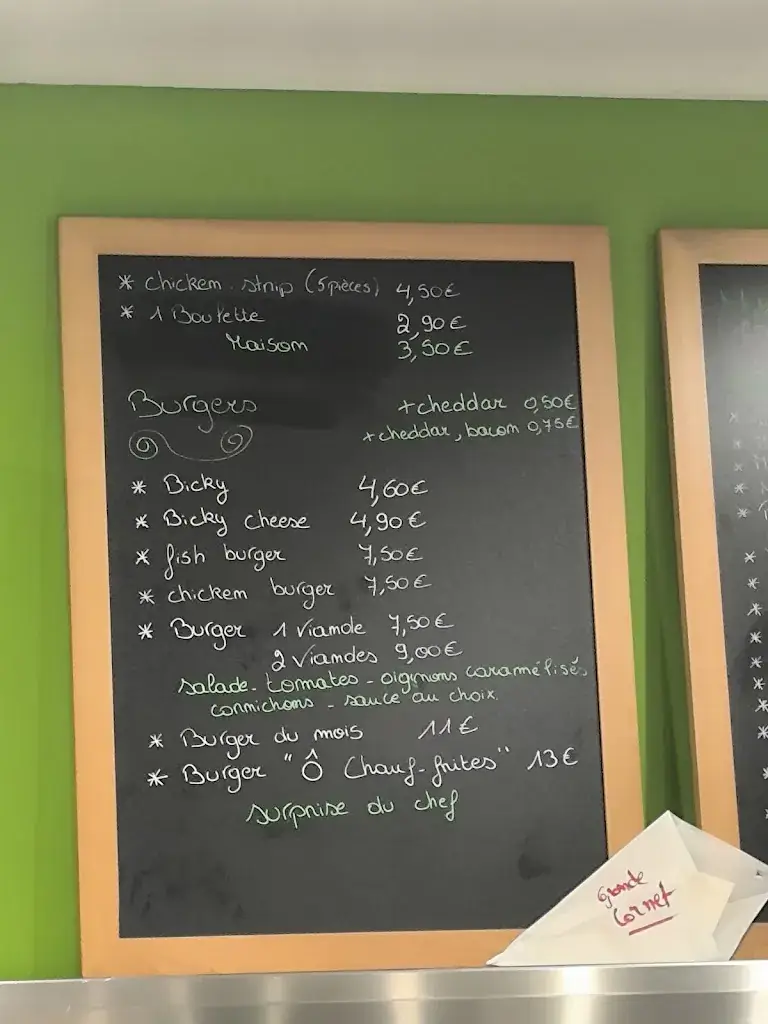 * chicken strip (5 pièces) 4,50€
* 1 Boulette 2,90€
Maison 3,50€
Burgers
+ cheddar 0,50€
+ cheddar, bacon 0,75€
* Bicky 4,60€
* Bicky cheese 4,90€
* fish burger 7,50€
* chicken burger 7,50€
* Burger 1 viande 7,50€
2 viandes 9,00€
salade - tomates - oignons caramélisés
cornichons - sauce au choix.
* Burger du mois 11€
* Burger "Ô Chauf-frites" 13€
surprise du chef
Grande
Cornet